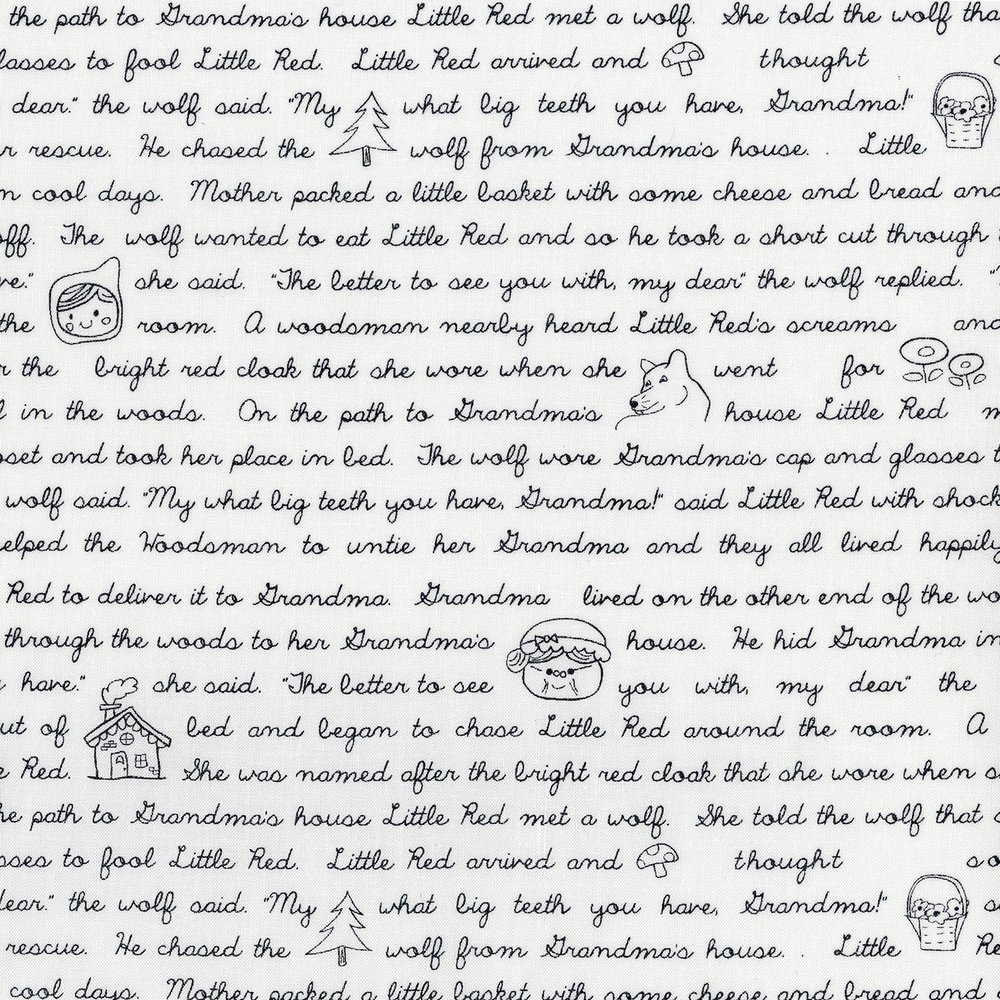 the path to Grandma's house Little Red met a wolf. She told the wolf tha
lasses to fool Little Red. Little Red arrived and thought
dear." the wolf said. "My what big teeth you have, Grandma!"
r rescue. He chased the wolf from Grandma's house. . Little
n cool days. Mother packed a little basket with some cheese and bread and
off. The wolf wanted to eat Little Red and so he took a short cut through
ve." she said. "The better to see you with, my dear" the wolf replied. "
the room. A woodsman nearby heard Little Red's screams and
r the bright red cloak that she wore when she went for
f in the woods. On the path to Grandma's house Little Red m
oset and took her place in bed. The wolf wore Grandma's cap and glasses t
wolf said. "My what big teeth you have, Grandma!" said Little Red with shock
elped the Woodsman to untie her Grandma and they all lived happily
Red to deliver it to Grandma. Grandma lived on the other end of the wo
through the woods to her Grandma's house. He hid Grandma in
have." she said. "The better to see you with, my dear" the
ut of bed and began to chase Little Red around the room. A
e Red. She was named after the bright red cloak that she wore when s
he path to Grandma's house Little Red met a wolf. She told the wolf that
sses to fool Little Red. Little Red arrived and thought so
dear." the wolf said. "My what big teeth you have, Grandma!" s
rescue. He chased the wolf from Grandma's house. . Little Re
cool days. Mother packed a little basket with some cheese and bread and